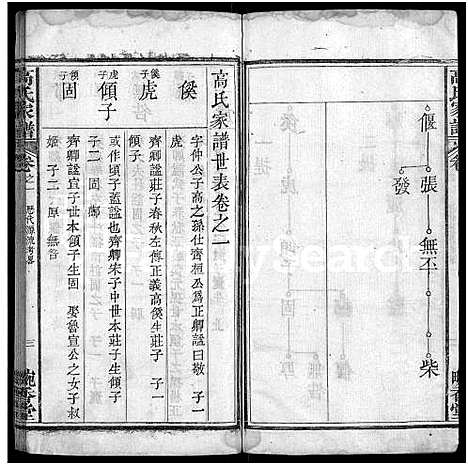 高氏家譜
偃
張
發
無丕
柴
高氏家譜世表卷之二
傒
字仲公子高之孫仕齊桓公爲正卿謚曰敬 子一
虎
虎
傒子
齊卿謚莊子春秋左傳正義高傒生莊子 子一
傾子
虎子
或作頃子蓋謚也齊卿朱子中世本莊子生傾子
子二 固
固
傾子
齊卿謚宣子世本傾子生固 娶魯宣公之女子叔
姬 子二 厚 無咎
高氏家譜
卷之一
歷代源流考畧
三